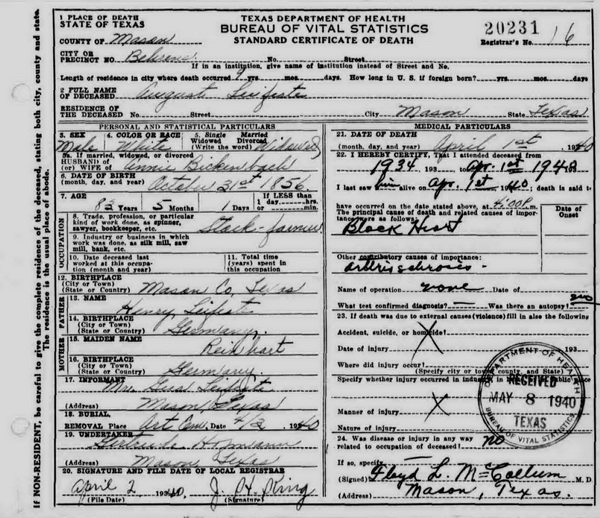 1 PLACE OF DEATH
STATE OF TEXAS
TEXAS DEPARTMENT OF HEALTH
BUREAU OF VITAL STATISTICS
STANDARD CERTIFICATE OF DEATH
20231
Registrar's No. 16
COUNTY OF Mason
CITY OR
PRECINCT NO. Behrens No. Street
If in an institution, give name of institution instead of Street and No.
Length of residence in city where death occurred yrs. mos. days. How long in U. S. if foreign born? yrs. mos. days
2 FULL NAME
OF DECEASED August Leifeste
RESIDENCE OF
THE DECEASED No. Street City Mason State Texas
PERSONAL AND STATISTICAL PARTICULARS
3. SEX 4. COLOR OR RACE 5. Single Married
Widowed Divorced
Male White Widowed
5a. If married, widowed, or divorced
HUSBAND OF
(or) WIFE OF Annie
6. DATE OF BIRTH
(month, day, and year) October 31st 1856
7. AGE If LESS than
1 day
83 Years 5 Months 1 Days hrs. min.
OCCUPATION
8. Trade, profession, or particular
kind of work done, as spinner,
sawyer, bookkeeper, etc. Stock-farmer
9. Industry or business in which
work was done, as silk mill, saw
mill, bank, etc.
10. Date deceased last
worked at this occupa-
tion (month and year)
11. Total time (years)
spent in this
occupation
12. BIRTHPLACE
(City or Town)
(State or Country) Mason Co, Texas
FATHER
13. NAME
Henry Leifeste
14. BIRTHPLACE
(City or Town)
(State or Country) Germany.
MOTHER
15. MAIDEN NAME
Reichhart
16. BIRTHPLACE
(City or Town)
(State or Country) Germany.
17. INFORMANT
Mrs. Leifeste
(Address) Mason, Texas
18. BURIAL
REMOVAL Place Art Cem. Date 4/2 1940
19. UNDERTAKER
(Address) Mason Texas
20. SIGNATURE AND FILE DATE OF LOCAL REGISTRAR
April 2 1940
(File Date) (Signature)
MEDICAL PARTICULARS
21. DATE OF DEATH
(month, day, and year) April 1st 1940
22. I HEREBY CERTIFY, that I attended deceased from
1934 to Apr. 1st 1940
I last saw him alive Apr. 1st 40; death is said to
have occurred on the date stated above, at 4:00 P.m.
The principal cause of death and related causes of impor-
tance were as follows:
Date of
Onset
Block Heart
Other contributory causes of importance:
Name of operation none Date of
What test confirmed diagnosis? Was there an autopsy? no
23. If death was due to external causes (violence) fill in also the following:
Accident, suicide, or homicide?
Date of injury 193
Where did injury occur?
(Specify city, county, and State)
Specify whether injury occurred in industry, in home, or in public place
Manner of injury
Nature of injury
DEPARTMENT OF HEALTH
RECEIVED
MAY 8 1940
TEXAS
BUREAU OF VITAL STATISTICS
24. Was disease or injury in any way
related to occupation of deceased? no
If so, specify
(Signed) Floyd L. McCollum M. D
(Address) Mason, Texas.
IF NON-RESIDENT, be careful to give the complete residence of the deceased, stating both city, county and state.
The residence is the usual place of abode.